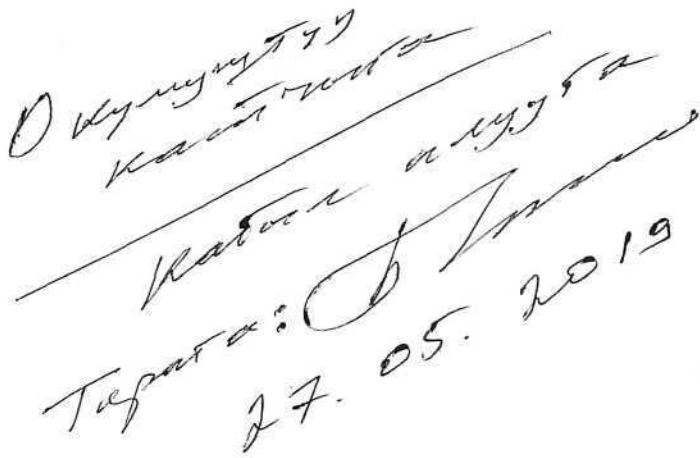 Окумуштуу
катчыга
кабыл алууга
Төрага:
27.05.2019